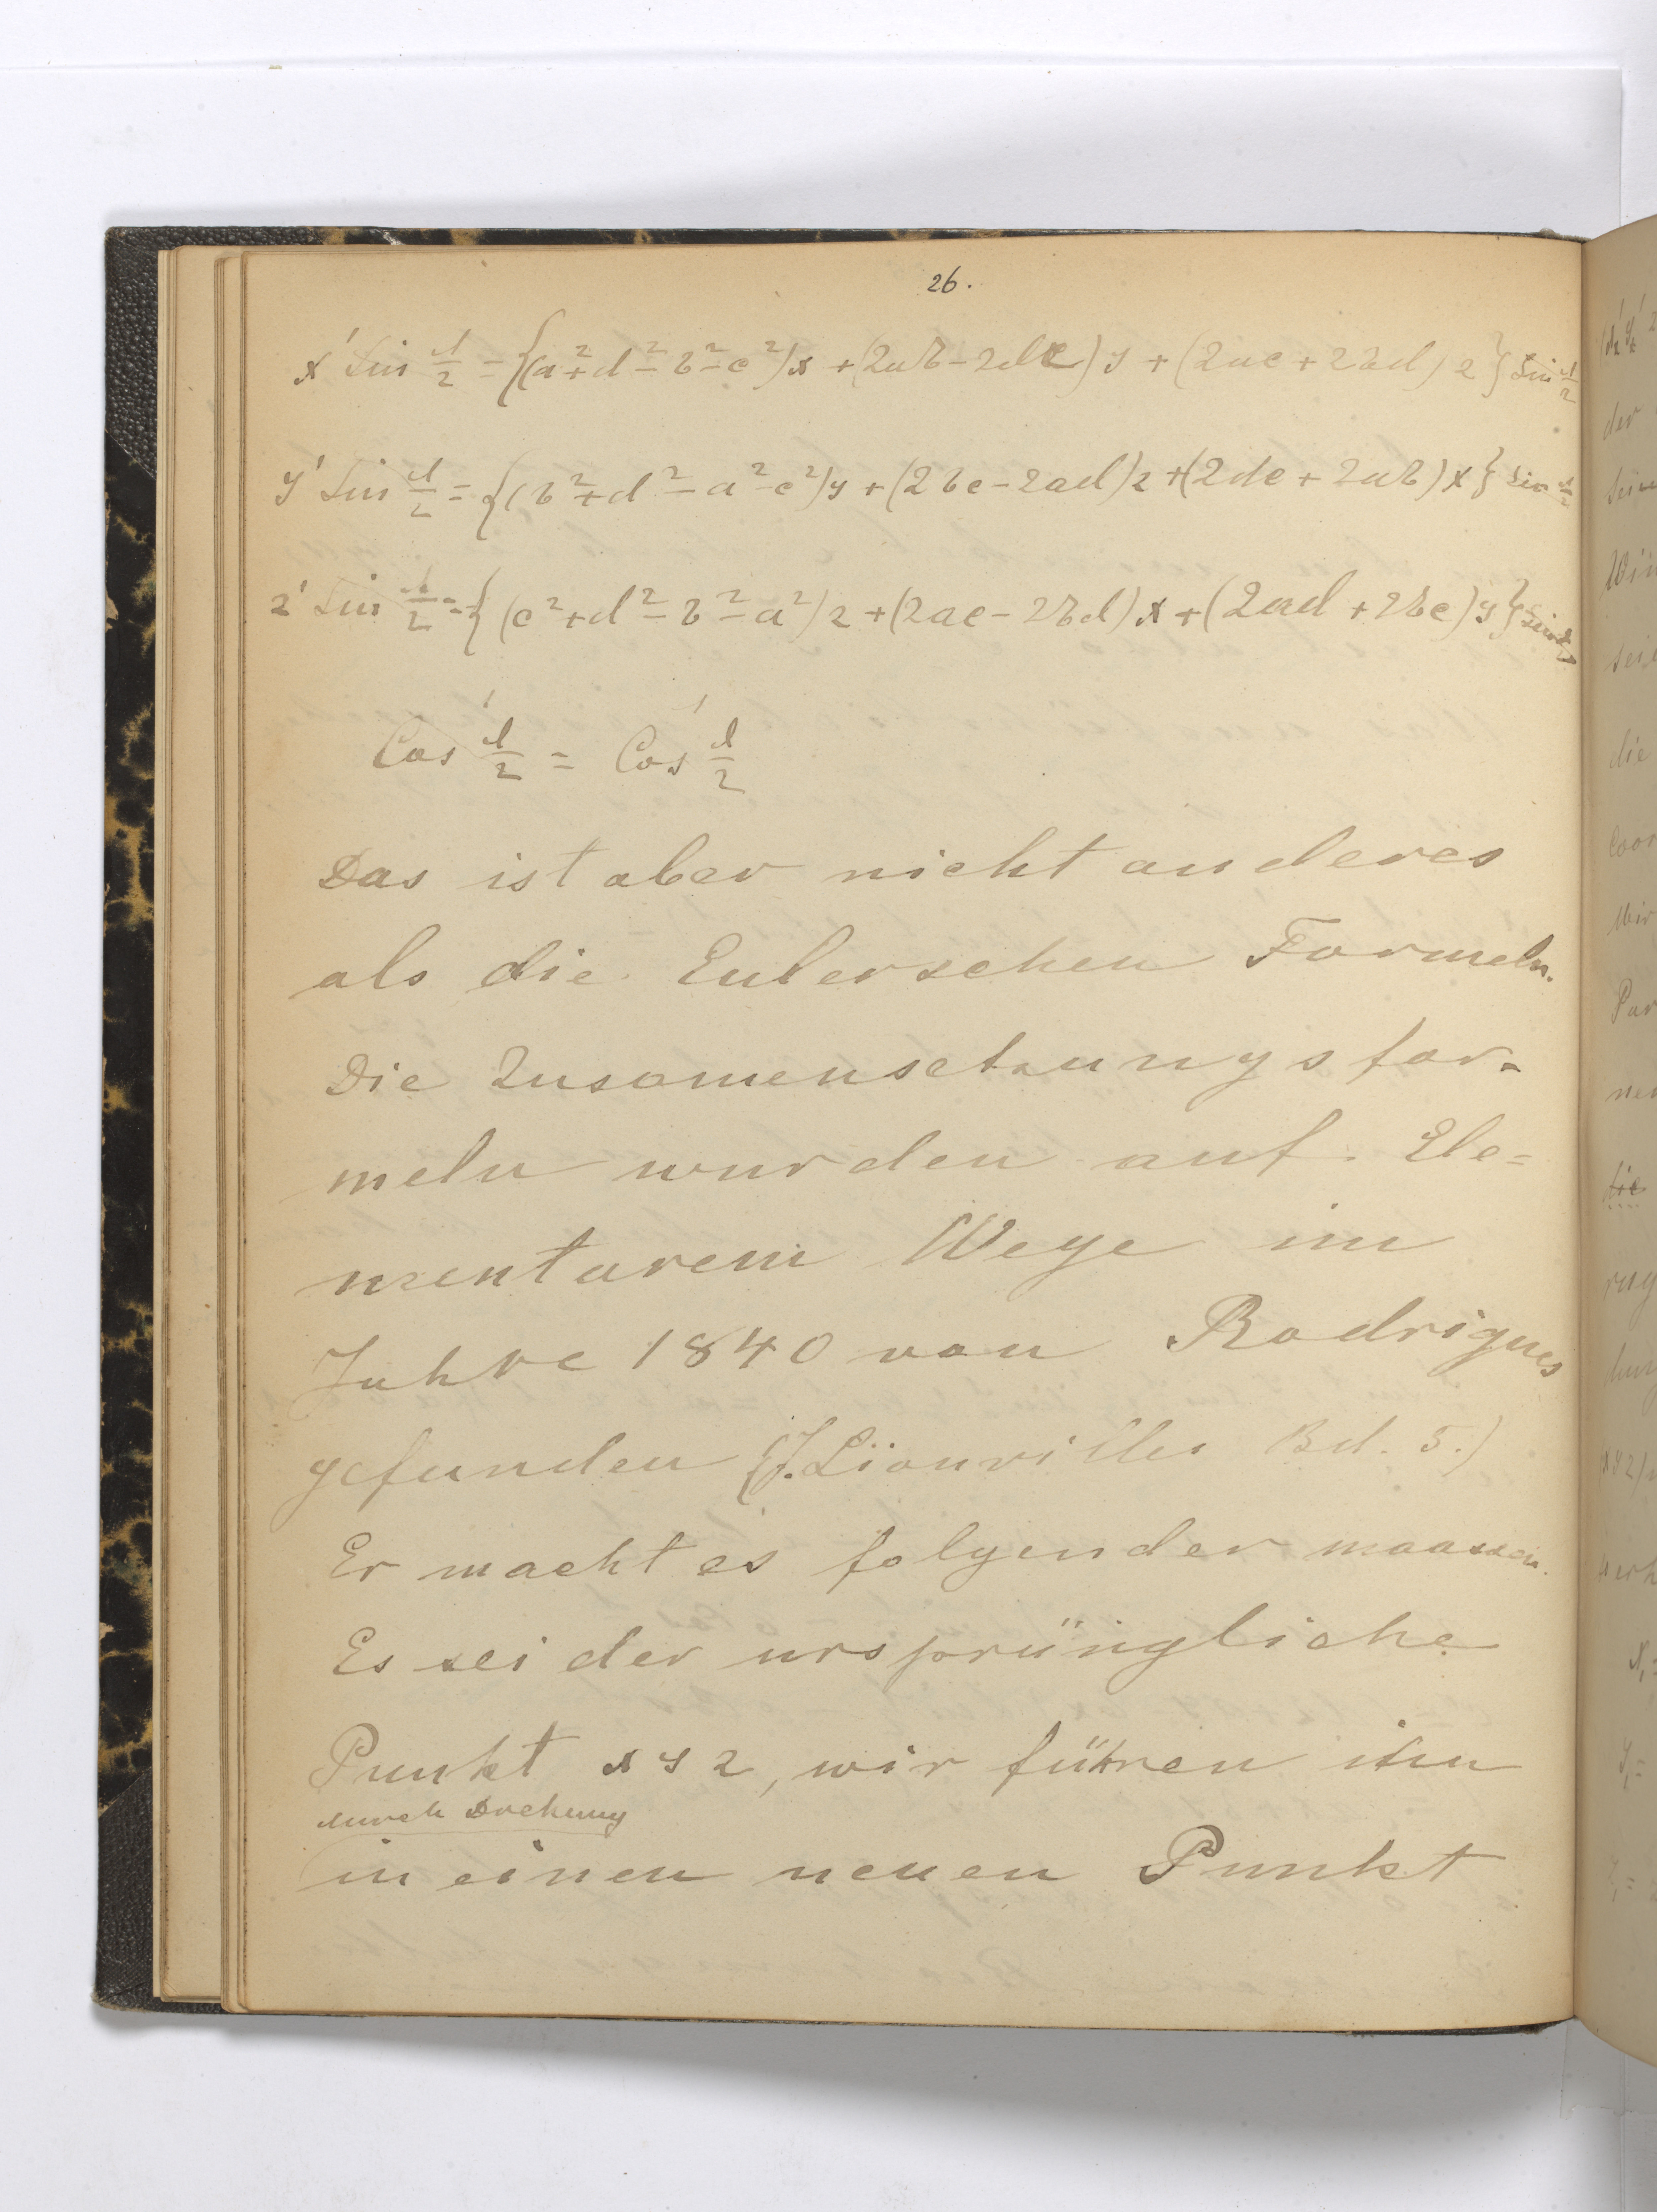 26.
x' Sin d/2 = {(a²+d²-b²-c²)x + (2ab-2dc)y + (2ac+2bd)z} Sin d/2
y' Sin d/2 = {(b²+d²-a²-c²)y + (2bc-2ad)z + (2dc+2ab)x} Sin d/2
z' Sin d/2 = {(c²+d²-b²-a²)z + (2ac-2bd)x + (2ad+2bc)y} Sin d/2
Cos' d/2 = Cos' d/2
Das ist aber nicht anderes
als die Eulerschen Formeln.
Die Zusamensetzungsfor-
meln wurden auf Ele=
mentarem Wege im
Jahre 1840 von Rodrigues
gefunden (J. Liouvilles Bd. 5.)
Er macht es folgender maassen.
Es sei der ursprüngliche
Punkt x y z, wir führen ihn
durch Drehung
in einen neuen Punkt